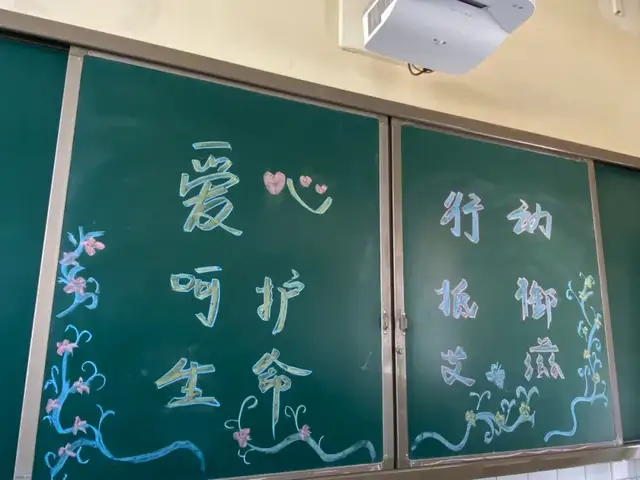 爱心
呵护
生命
行动
抵御
艾滋